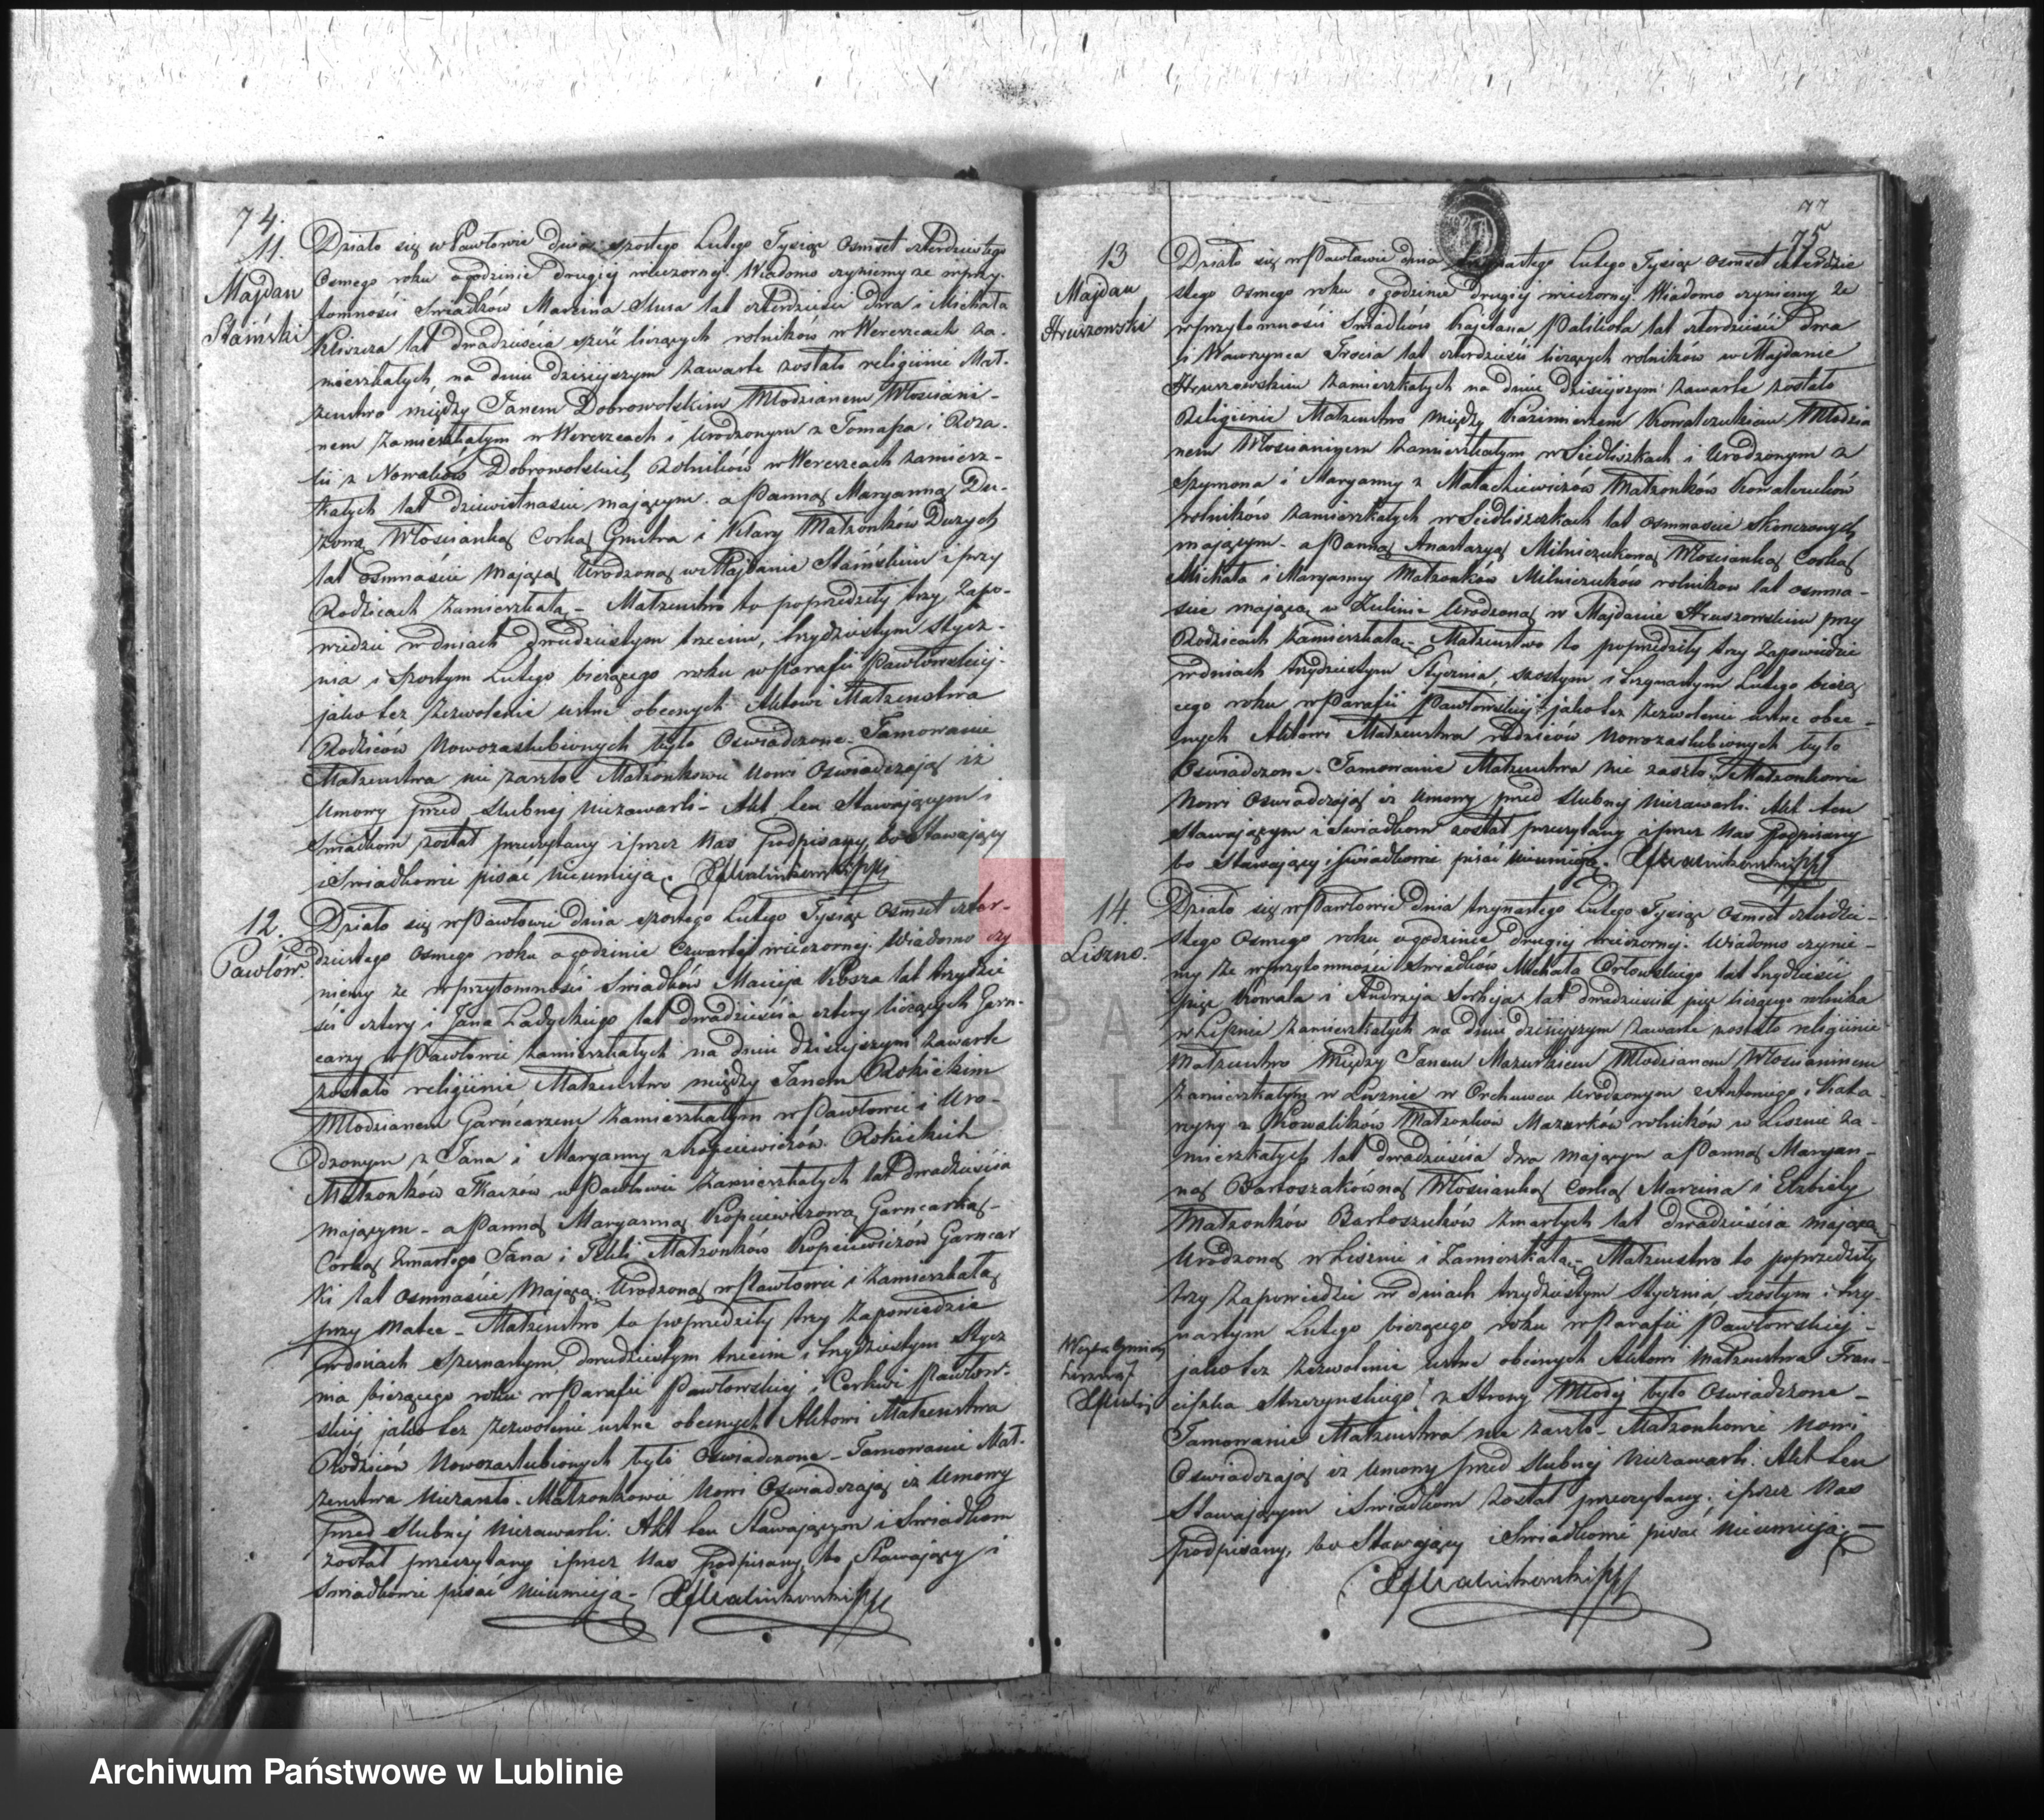 74.
11.
Majdan
Stáiński
Działo się w Pawłowie dnia szostego Lutego Tysiąc Osmset czterdziestego
Osmego roku o godzinie drugiej wieczornej. Wiadomo czyniemy ze w przy-
tomności Swiadków Marcina Słusa lat czterdzieści dwa i Michała
Kliszcza lat dwadzieścia sześć liczących rolników w Wereszcach za-
mieszkałych, na dniu dzisiejszym zawarte zostało religijnie Mał-
zenstwo między Janem Dobrowolskim Młodzianem Włosciani-
nem zamieszkałym w Wereszcach i urodzonym z Tomasza i Roza-
lii z Nowaków Dobrowolskich Rolników w Wereszcach zamiesz-
kałych lat dziewiętnaście mającym. a Panną Maryanną Du-
zową Włościanką Corką Gmitra i Klary Małzonków Duzych
lat osmnaście mającą urodzoną w Majdanie Stáińskim i przy
Rodzicach zamieszkałą - Małzenstwo to poprzedziły trzy Zapo-
wiedzie w dniach dwudziestym trzecim, trzydziestym Stycz-
nia i szostym Lutego bierzącego roku w Parafii Pawłowskiej-
jako tez zezwolenie ustne obecnych Aktowi Małzenstwa
Rodziców Nowozaslubionych było Oswiadczone. Tamowanie
Małzenstwa nie zaszło. Małzonkowie Nowi Oswiadczają iż
Umowy przed slubnej niezawarli - Akt ten Stawającym i
Swiadkom został przeczytany i przez Nas podpisany, bo Stawający
i Swiadkowie pisać nieumieją.
12.
Pawłów.
Działo się w Pawłowie dnia szostego Lutego Tysiąc Osmset czter-
dziestego Osmego roku o godzinie Czwartej wieczornej. Wiadomo czy
niemy ze w przytomności Swiadków Macieja Kłosza lat trzydzie
ści cztery i Jana Ładyckiego lat dwadzieścia cztery liczących Garn-
carzy w Pawłowie zamieszkałych na dniu dzisiejszym zawarte
zostało religijnie Małzenstwo między Janem Rokickim
Młodzianem Garńcarzem zamieszkałym w Pawłowie i Uro-
dzonym z Jana i Maryanny z Kopciewiczów Rokickich
Małzonków Tkaczów w Pawłowie zamieszkałych lat dwadzieścia
mającym - a Panną Maryanną Kopciewiczową Garncarką-
Corką Zmarłego Jana i Tekli Małzonków Kopciewiczów Garncar
ki lat osmnaście mającą, Urodzoną w Pawłowie i zamieszkałą
przy Matce - Małzenstwo to poprzedziły trzy Zapowiedzie
w dniach szesnastym dwudziestym trzecim i trzydziestym Stycz
nia bierzącego roku w Parafii Pawłowskiej i Cerkwi Pawłow-
skiej jako tez zezwolenie ustne obecnych Aktowi Małzenstwa
Rodziców Nowozaslubionych było Oswiadczone - Tamowanie Mał-
zenstwa niezaszło. Małzonkowie Nowi Oswiadczają iz Umowy
przed slubnej niezawarli. Akt ten Stawającym i Swiadkom
został przeczytany i przez Nas podpisany, bo Stawający i
Swiadkowie pisać nieumieją -
75
13
Majdan
Hruszowski
Działo się w Pawłowie dnia trzynastego Lutego Tysiąc Osmset czterdzie
stego Osmego roku o godzinie drugiej wieczornej. Wiadomo czyniemy ze
w przytomności Swiadków Kajetana Palikota lat czterdzieści dwa
i Wawrzynca Trocia lat czterdzieści liczących rolników w Majdanie
Hruszowskim zamieszkałych na dniu dzisiejszym zawarte zostało
Religijnie Małzenstwo między Kazimierzem Kowalczukiem Młodzia
nem Włoscianinem zamieszkałym w Siedliszkach i Urodzonym z
Szymona i Maryanny z Małachiewiczów Małzonków Kowalczuków
rolników zamieszkałych w Siedliszczkach lat osmnascie skonczonych
mającym - a Panną Anastazyą Milniczukową Włościanką Corką
Michała i Maryanny Małzonków Milniczuków rolnikow lat osmna-
scie mającą w Zulinie Urodzoną w Majdanie Hruszowskim przy
Rodzicach zamieszkałą - Małzenstwo to poprzedziły trzy Zapowiedzie
w dniach trzydziestym Stycznia, szostym i trzynastym Lutego bierzą
cego roku w Parafii Pawłowskiej - jako tez zezwolenie ustne obec-
nych Aktowi Małzenstwa rodziców Nowozaslubionych było
Oswiadczone - Tamowanie Małzenstwa nie zaszło. Małzonkowie
Nowi Oswiadczają iz Umowy przed slubnej niezawarli. Akt ten
Stawającym i Swiadkom został przeczytany i przez Nas podpisany
bo Stawający i Swiadkowie pisać nieumieją.
14.
Liszno.
Działo się w Pawłowie dnia trzynastego Lutego Tysiąc Osmset czterdzie-
stego Osmego roku o godzinie drugiej wieczornej. Wiadomo czynie-
my ze w przytomności Swiadków Michała Orłowskiego lat trzydzieści
pięć Kowala i Andrzeja lat dwadzieścia pięć liczącego rolnika
w Lisznie zamieszkałych na dniu dzisiejszym zawarte zostało religijnie
Małzenstwo między Janem Mazurkiem Młodzianem Włoscianinem
zamieszkałym w Lisznie w Orchowcu Urodzonym z Antoniego i Kata-
rzyny z Kowalików Małzonków Mazurków rolników w Lisznie za-
mieszkałych lat dwadzieścia dwa mającym a Panną Maryan-
ną Bartoszakówną Włoscianką Corką Marcina i Elzbiety
Małzonków Bartoszuków Zmarłych lat dwadzieścia mającą
Urodzoną w Lisznie i Zamieszkałą - Małzenstwo to poprzedziły
trzy Zapowiedzie w dniach trzydziestym Stycznia szostym i trzy-
nastym Lutego bierzącego roku w Parafii Pawłowskiej -
jako tez zezwolenie ustne obecnych Aktowi Małzenstwa Fran-
ciszka z Strony Młodej było Oswiadczone -
Wojta Gminy
Tamowanie Małzenstwa nie zaszło - Małzonkowie Nowi
Oswiadczają iz Umowy przed slubnej niezawarli. Akt ten
Stawającym i Swiadkom został przeczytany i przez Nas
podpisany, bo Stawający i Swiadkowie pisać nieumieją. -
ARCHIWUM PAŃSTWOWE
W LUBLINIE
Archiwum Państwowe w Lublinie